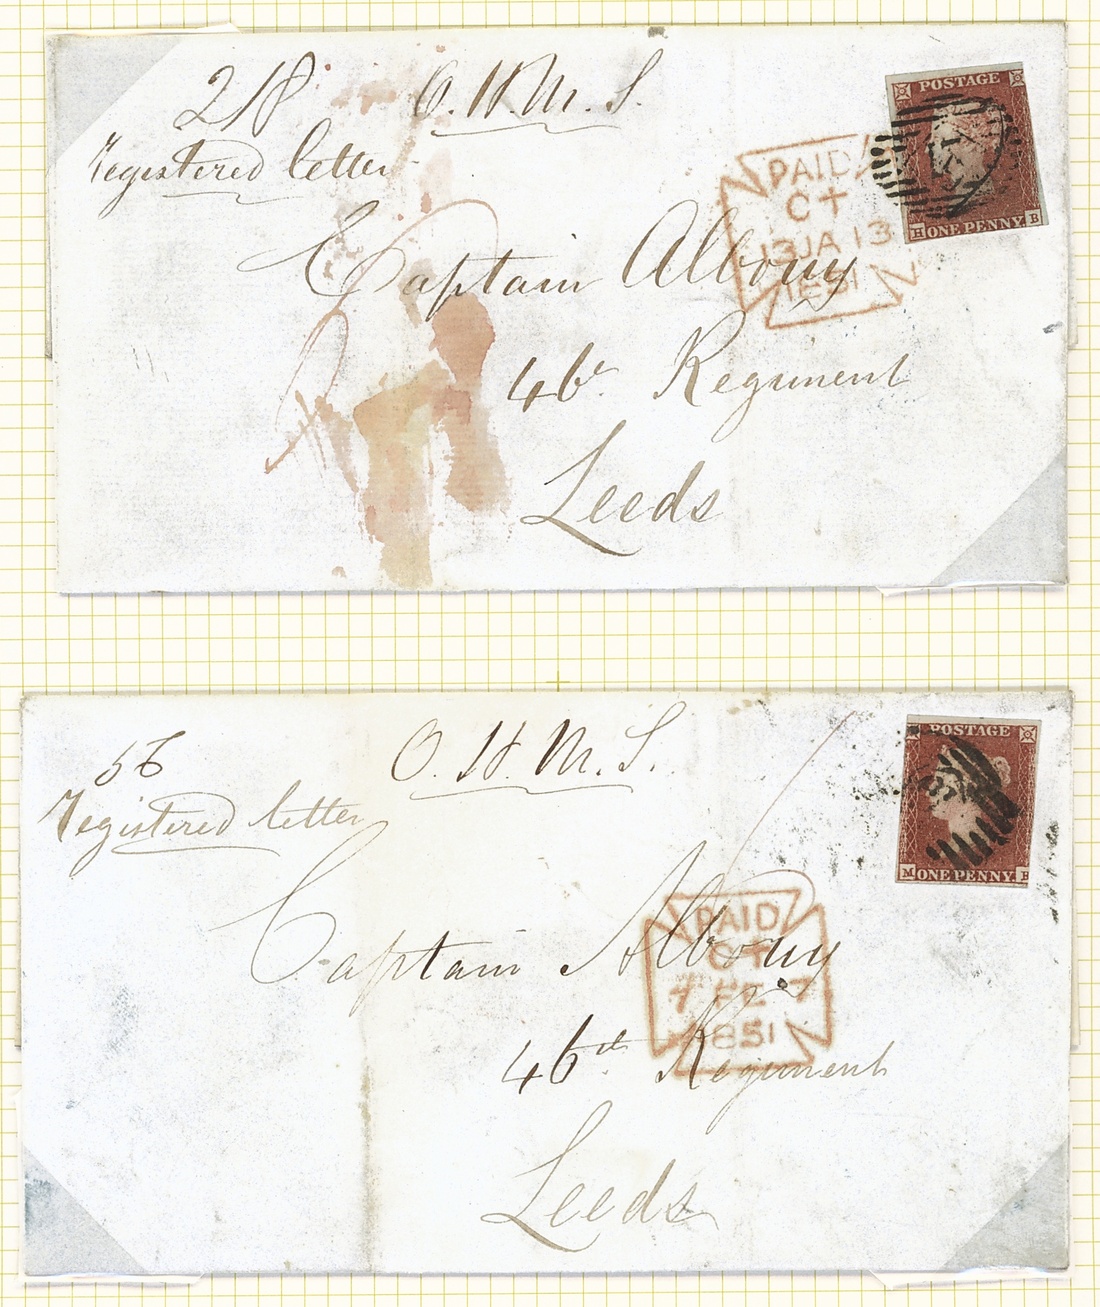 218
O. H. M. S.
Registered letter
POSTAGE
ONE PENNY
H B
PAID
CT
13 JA 13
1851
Captain Albouy
46th Regiment
Leeds
56
O. H. M. S.
Registered letter
POSTAGE
M ONE PENNY
PAID
CT
7 FE 7
1851
Captain Albouy
46th Regiment
Leeds